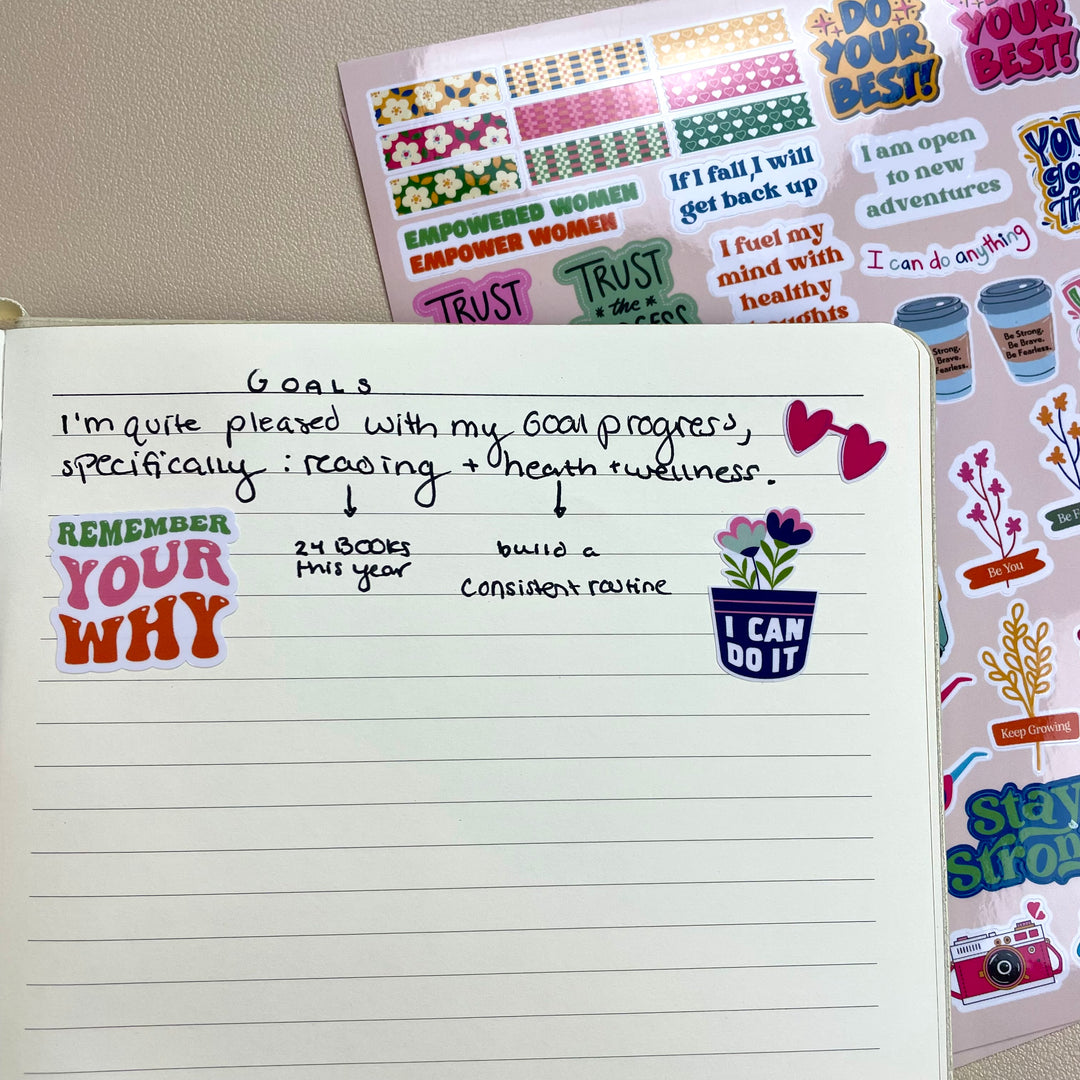 DO
YOUR
BEST!
YOUR
BEST!
I am open
to new
adventures
If I fall, I will
get back up
EMPOWERED WOMEN
EMPOWER WOMEN
I fuel my
mind with
healthy
I can do anything
TRUST
TRUST
*the*
Be Strong.
Be Brave.
Be Fearless.
Strong.
Brave.
Fearless.
GOALS
I'm quite pleased with my Goal progress,
specifically : reading + heath + wellness.
24 BOOKS
this year
build a
consistent routine
REMEMBER
YOUR
WHY
I CAN
DO IT
Be You
Keep Growing
stay
strong